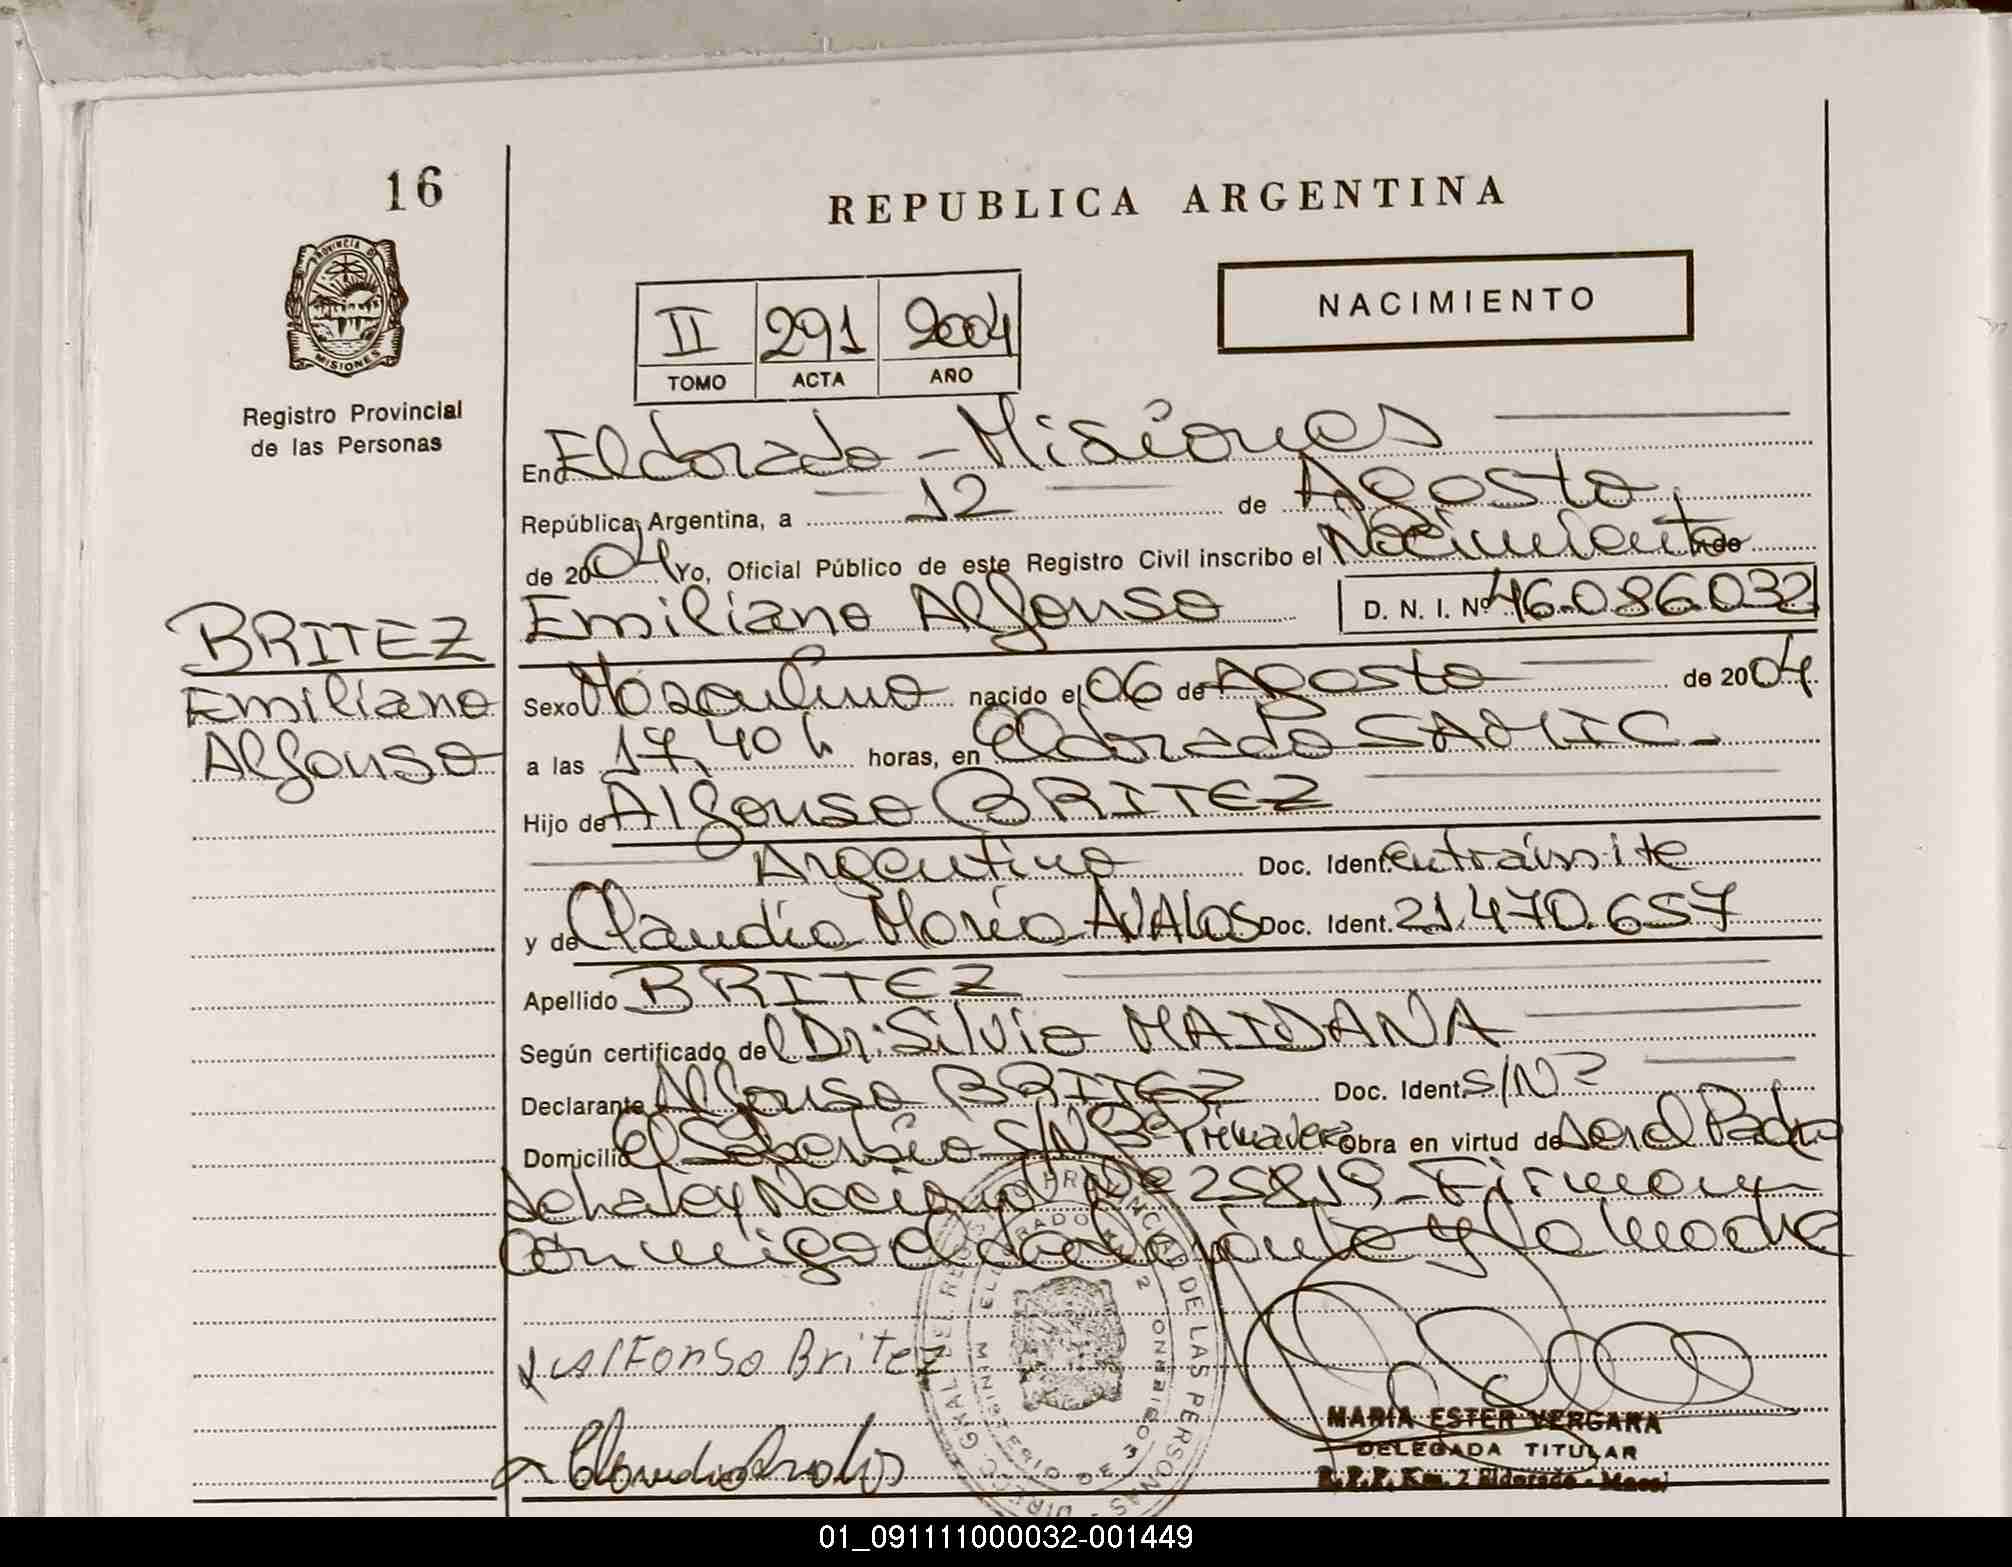 16
REPUBLICA ARGENTINA
PROVINCIA D
MISIONES
Registro Provincial
de las Personas
II 291 2004
TOMO ACTA AÑO
NACIMIENTO
En Eldorado - Misiones
República Argentina, a 12 de Agosto
de 2004 Yo, Oficial Público de este Registro Civil inscribo el Nacimiento de
Emiliano Alfonso D. N. I. Nº 46.086.032
BRITEZ
Emiliano
Alfonso
Sexo Masculino nacido el 06 de Agosto de 2004
a las 17,40 h horas, en Eldorado SAMIC.-
Hijo de Alfonso BRITEZ
Argentino Doc. Ident. entrámite
y de Claudia María AVALOS Doc. Ident. 21.470.657
Apellido BRITEZ
Según certificado del Dr: Silvio MAIDANA
Declarante Alfonso BRITEZ Doc. Ident. S/Nº
Domicilio El S/N Bº Primavera Obra en virtud de ser el Padre
ley Nacional Nº 25819 - Firman
conmigo el declarante y la madre
Alfonso Britez
Claudia Avalos
MARIA ESTER VERGARA
DELEGADA TITULAR
R.P.P. Km. 2 Eldorado - Mnes.
01_091111000032-001449